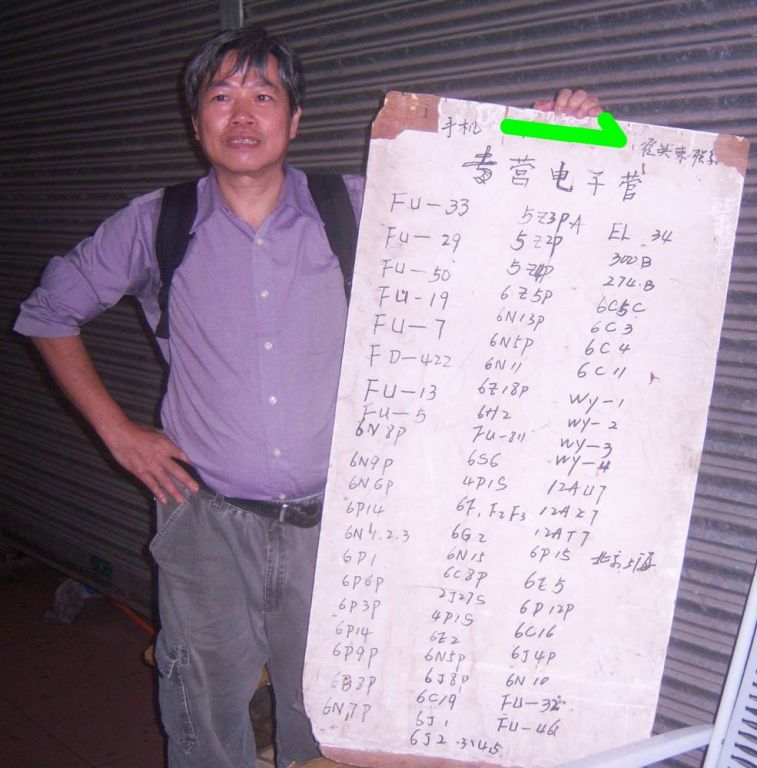 手机
专营电子管
FU-33
FU-29
FU-50
FU-19
FU-7
FD-422
FU-13
FU-5
6N8P
6N9P
6N6P
6P14
6N1.2.3
6P1
6P6P
6P3P
6P14
6P9P
6B8P
6N7P
5Z3PA
5Z2P
5Z4P
6Z5P
6N13P
6N5P
6N11
6Z18P
6H2
FU-811
6S6
4P1S
6F1F2F3
6G2
6N15
6C8P
2J27S
4P1S
6Z2
6N5P
6J8P
6C19
6J1
6J2.3.4.5
EL 34
300B
274.B
6C5C
6C3
6C4
6C11
WY-1
WY-2
WY-3
WY-4
12AU7
12AX7
12AT7
6P15 北京上海
6E5
6P12P
6C16
6J4P
6N10
FU-32
FU-46